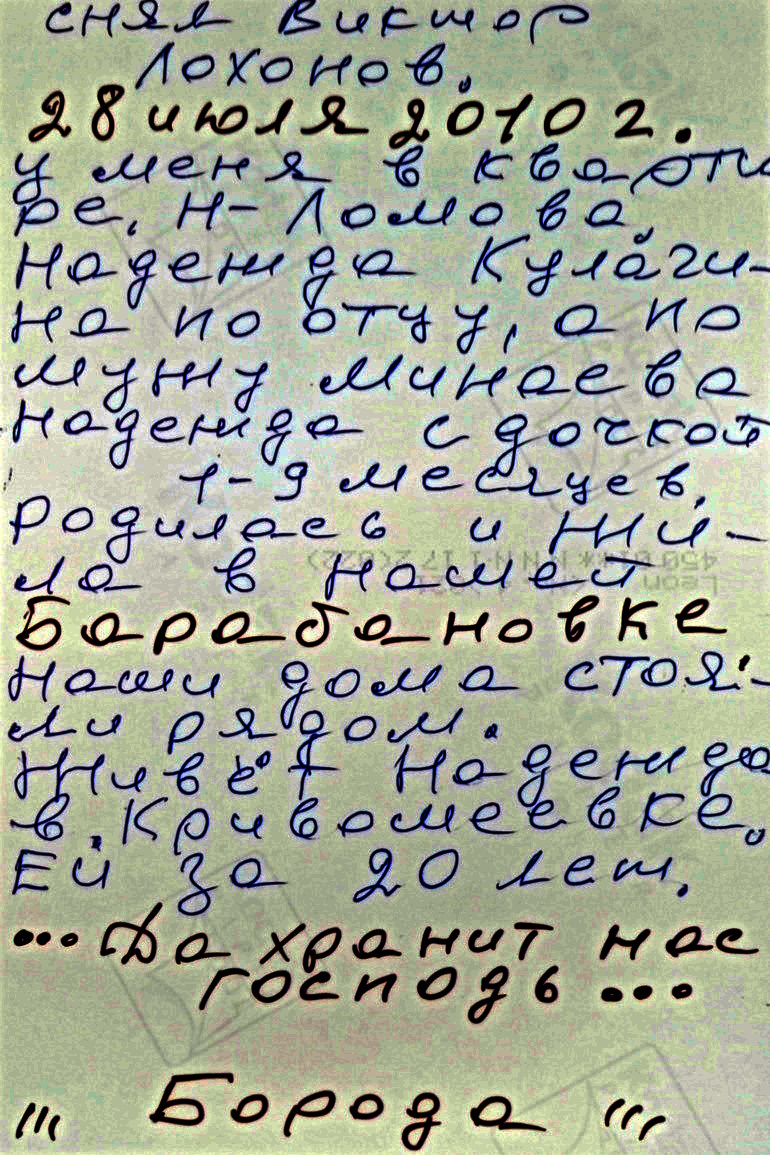 снял Виктор
Лохонов.
28 июля 2010 г.
у меня в кварти
ре. Н-Ломова,
Надежда Кулачи-
на по отцу, а по
мужу Минаева
Надежда с дочкой
1-9 месяцев.
Родилась и жи-
ла в нашей
Барабановке
Наши дома стоя-
ли рядом.
Живёт Надежда
в. Кривомеевке.
Ей за 20 лет.
...Да хранит нас
господь...
,,, Борода ,,,